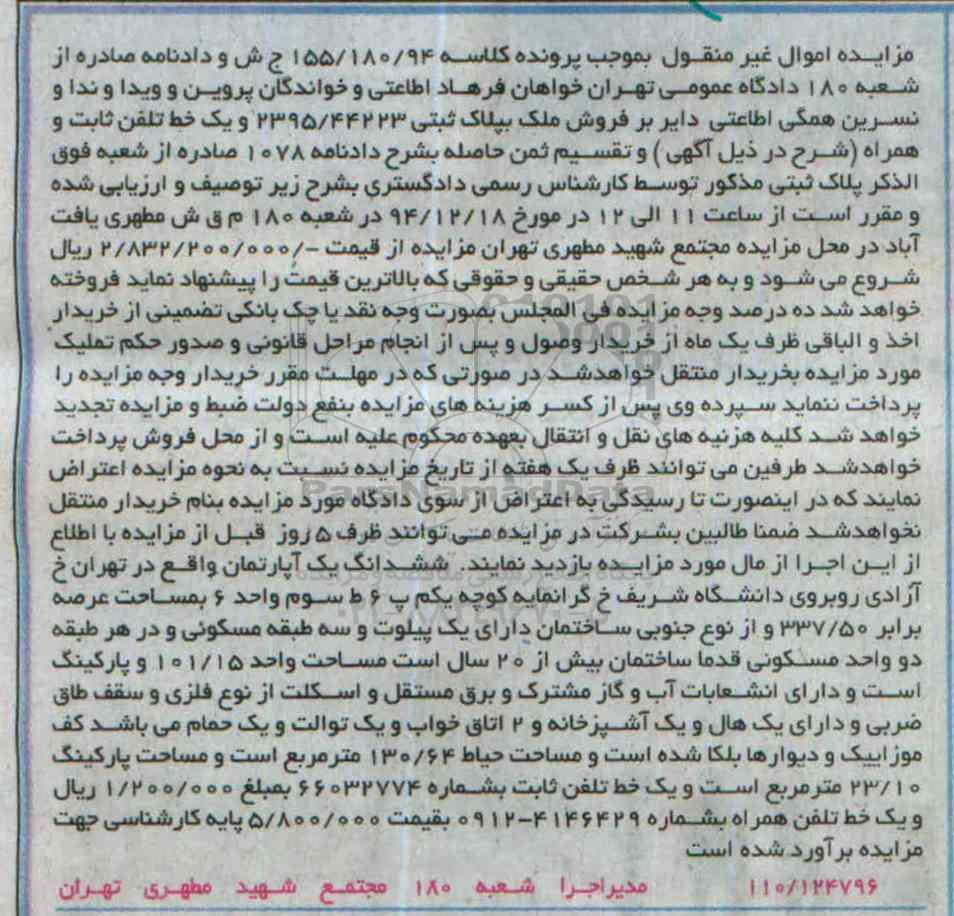 مزایده اموال غیر منقول بموجب پرونده کلاسه ۱۵۵/۱۸۰/۹۴ ج ش و دادنامه صادره از
شعبه ۱۸۰ دادگاه عمومی تهران خواهان فرهاد اطاعتی و خواندگان پروین و ویدا و ندا و
نسرین همگی اطاعتی دایر بر فروش ملک بپلاک ثبتی ۲۳۹۵/۴۴۲۲۳ و یک خط تلفن ثابت و
همراه (شرح در ذیل آگهی) و تقسیم ثمن حاصله بشرح دادنامه ۱۰۷۸ صادره از شعبه فوق
الذکر پلاک ثبتی مذکور توسط کارشناس رسمی دادگستری بشرح زیر توصیف و ارزیابی شده
و مقرر است از ساعت ۱۱ الی ۱۲ در مورخ ۹۴/۱۲/۱۸ در شعبه ۱۸۰ م ق ش مطهری یافت
آباد در محل مزایده مجتمع شهید مطهری تهران مزایده از قیمت -/۲/۸۳۲/۲۰۰/۰۰۰ ریال
شروع می شود و به هر شخص حقیقی و حقوقی که بالاترین قیمت را پیشنهاد نماید فروخته
خواهد شد ده درصد وجه مزایده فی المجلس بصورت وجه نقد یا چک بانکی تضمینی از خریدار
اخذ و الباقی ظرف یک ماه از خریدار وصول و پس از انجام مراحل قانونی و صدور حکم تملیک
مورد مزایده بخریدار منتقل خواهدشد در صورتی که در مهلت مقرر خریدار وجه مزایده را
پرداخت ننماید سپرده وی پس از کسر هزینه های مزایده بنفع دولت ضبط و مزایده تجدید
خواهد شد کلیه هزنیه های نقل و انتقال بعهده محکوم علیه است و از محل فروش پرداخت
خواهدشد طرفین می توانند ظرف یک هفته از تاریخ مزایده نسبت به نحوه مزایده اعتراض
نمایند که در اینصورت تا رسیدگی به اعتراض از سوی دادگاه مورد مزایده بنام خریدار منتقل
نخواهدشد ضمنا طالبین بشرکت در مزایده می توانند ظرف ۵ روز قبل از مزایده با اطلاع
از این اجرا از مال مورد مزایده بازدید نمایند. ششدانگ یک آپارتمان واقع در تهران خ
آزادی روبروی دانشگاه شریف خ گرانمایه کوچه یکم پ ۶ ط سوم واحد ۶ بمساحت عرصه
برابر ۳۳۷/۵۰ و از نوع جنوبی ساختمان دارای یک پیلوت و سه طبقه مسکونی و در هر طبقه
دو واحد مسکونی قدما ساختمان بیش از ۲۰ سال است مساحت واحد ۱۰۱/۱۵ و پارکینگ
است و دارای انشعابات آب و گاز مشترک و برق مستقل و اسکلت از نوع فلزی و سقف طاق
ضربی و دارای یک هال و یک آشپزخانه و ۲ اتاق خواب و یک توالت و یک حمام می باشد کف
موزاییک و دیوارها بلکا شده است و مساحت حیاط ۱۳۰/۶۴ مترمربع است و مساحت پارکینگ
۲۳/۱۰ مترمربع است و یک خط تلفن ثابت بشماره ۶۶۰۳۲۷۷۴ بمبلغ ۱/۲۰۰/۰۰۰ ریال
و یک خط تلفن همراه بشماره ۴۱۴۶۴۲۹-۰۹۱۲ بقیمت ۵/۸۰۰/۰۰۰ پایه کارشناسی جهت
مزایده برآورد شده است
۱۱۰/۱۲۴۷۹۶ مدیراجرا شعبه ۱۸۰ مجتمع شهید مطهری تهران
ParsNamadData